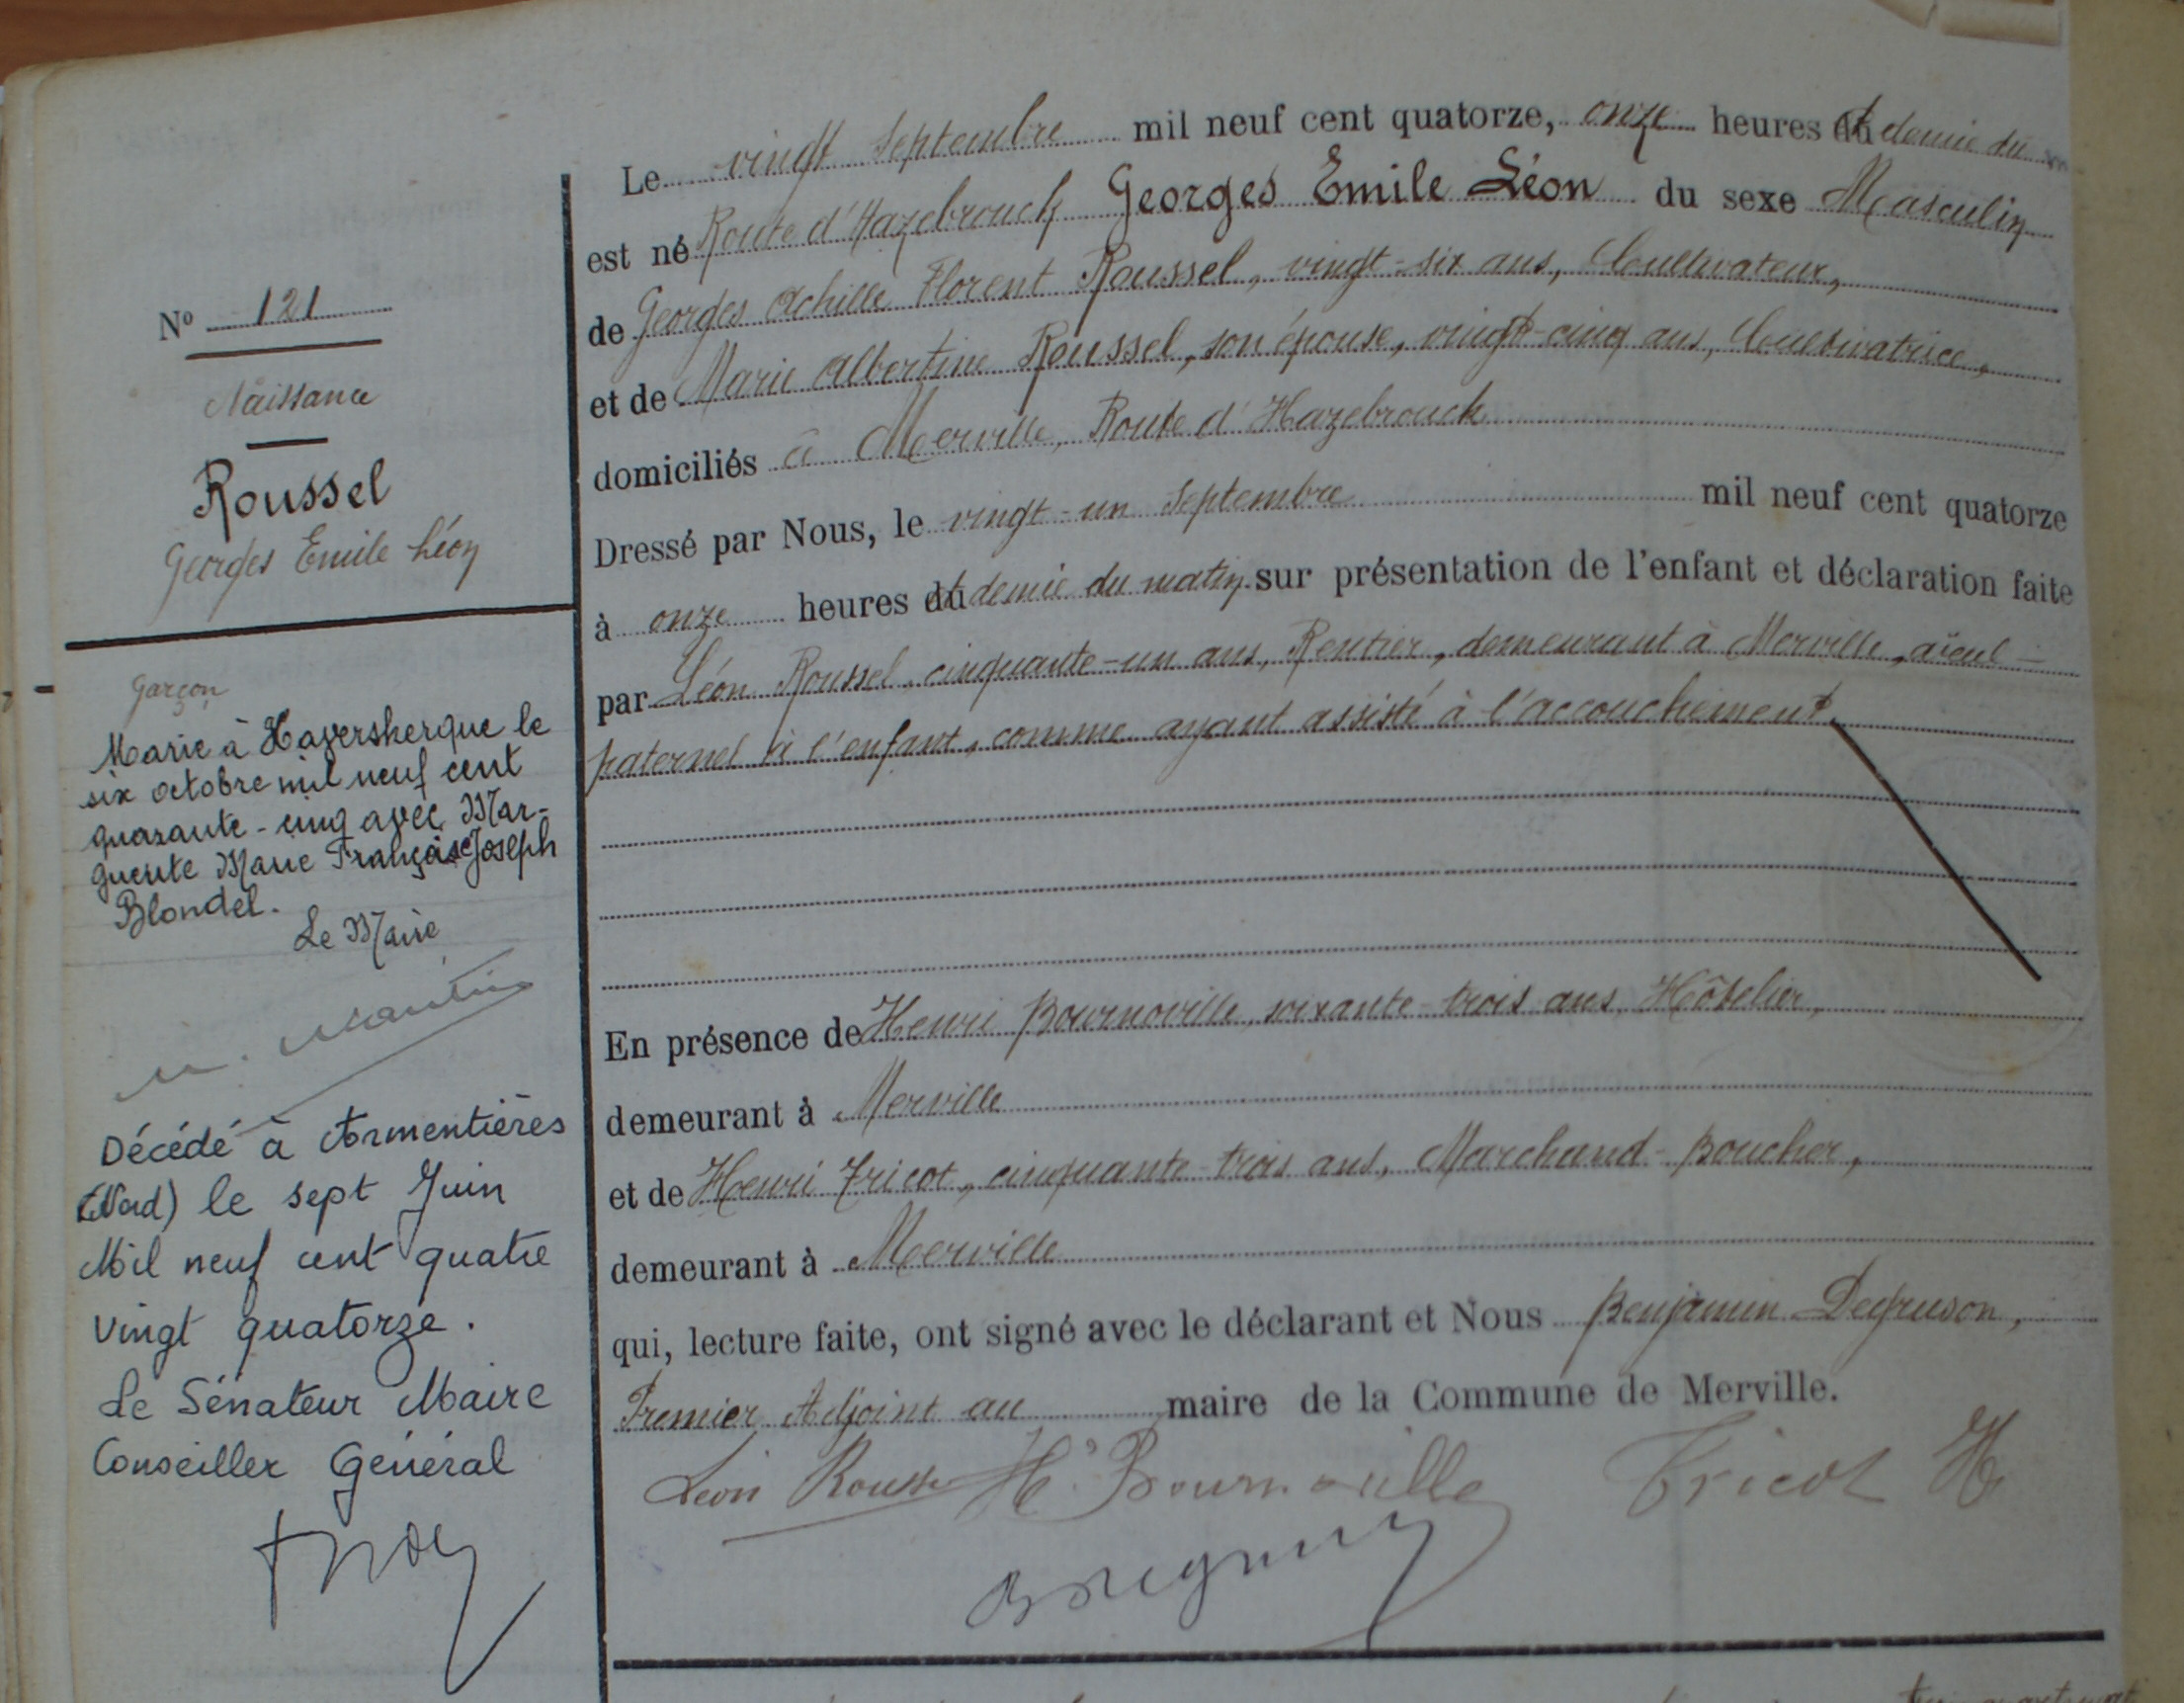 N° 121
Naissance
Roussel
Georges Emile Léon
Garçon
Marie à Haversherque le
six octobre mil neuf cent
quarante-cinq avec Mar-
guerite Marie Françoise Joseph
Blondel.
Le Maire
Décédé à Armentières
(Nord) le sept Juin
Mil neuf cent quatre
vingt quatorze.
Le Sénateur Maire
Conseiller Général
Le vingt Septembre mil neuf cent quatorze, onze heures et demie du
est né Route d'Hazebrouck Georges Emile Léon du sexe Masculin
de Georges Achille Florent Roussel, vingt-six ans, Cultivateur,
et de Marie Albertine Roussel, son épouse, vingt-cinq ans, Cultivatrice,
domiciliés à Merville, Route d'Hazebrouck
Dressé par Nous, le vingt-un Septembre mil neuf cent quatorze
à onze heures et demie du matin sur présentation de l'enfant et déclaration faite
par Léon Roussel, cinquante-un ans, Rentier, demeurant à Merville, aïeul
paternel à l'enfant, comme ayant assisté à l'accouchement.
En présence de Henri Bournoville, soixante-trois ans, Hôtelier,
demeurant à Merville
et de Henri Tricot, cinquante-trois ans, Marchand-Boucher,
demeurant à Merville
qui, lecture faite, ont signé avec le déclarant et Nous Benjamin Degruson,
Premier Adjoint au maire de la Commune de Merville.
Léon Roussel H. Bournoville Tricot H